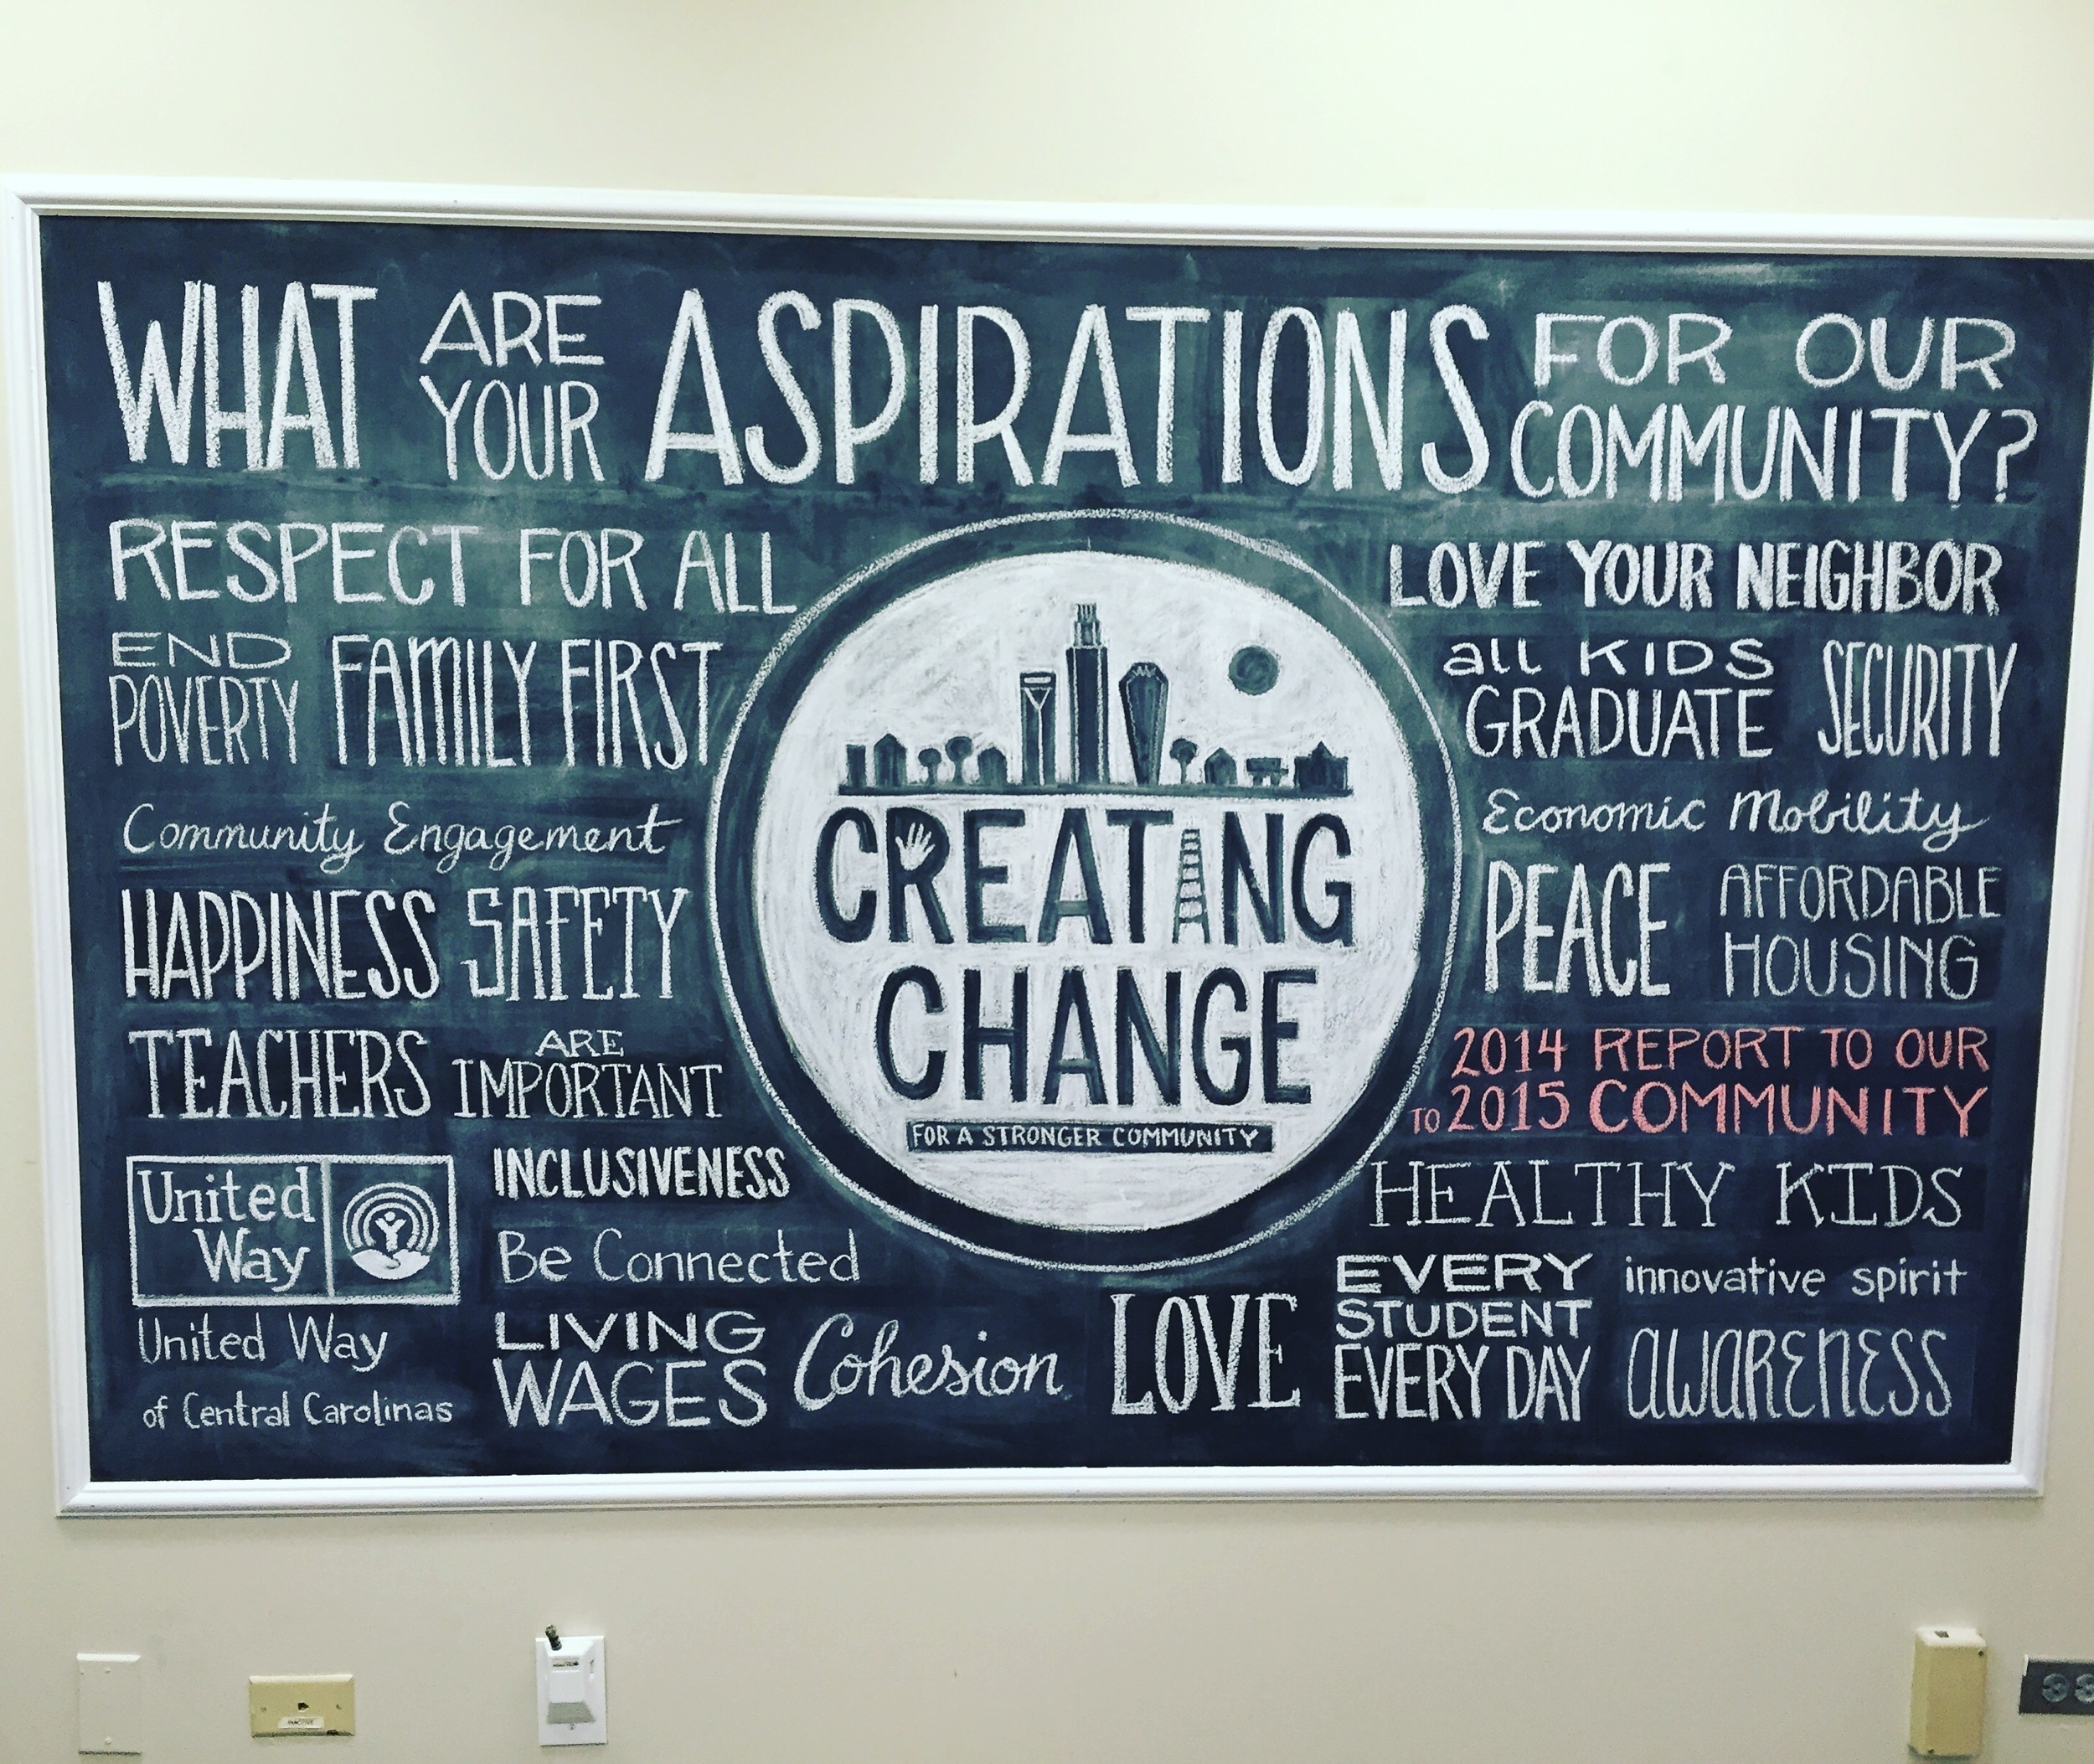 WHAT ARE YOUR ASPIRATIONS FOR OUR COMMUNITY?
RESPECT FOR ALL
END
POVERTY
FAMILY FIRST
Community Engagement
HAPPINESS SAFETY
TEACHERS ARE IMPORTANT
United
Way
United Way
of Central Carolinas
INCLUSIVENESS
Be Connected
LIVING
WAGES
Cohesion
CREATING
CHANGE
FOR A STRONGER COMMUNITY
LOVE YOUR NEIGHBOR
all KIDS
GRADUATE
SECURITY
Economic Mobility
PEACE
AFFORDABLE
HOUSING
2014 REPORT TO OUR
TO 2015 COMMUNITY
HEALTHY KIDS
LOVE
EVERY
STUDENT
EVERY DAY
innovative spirit
AWARENESS